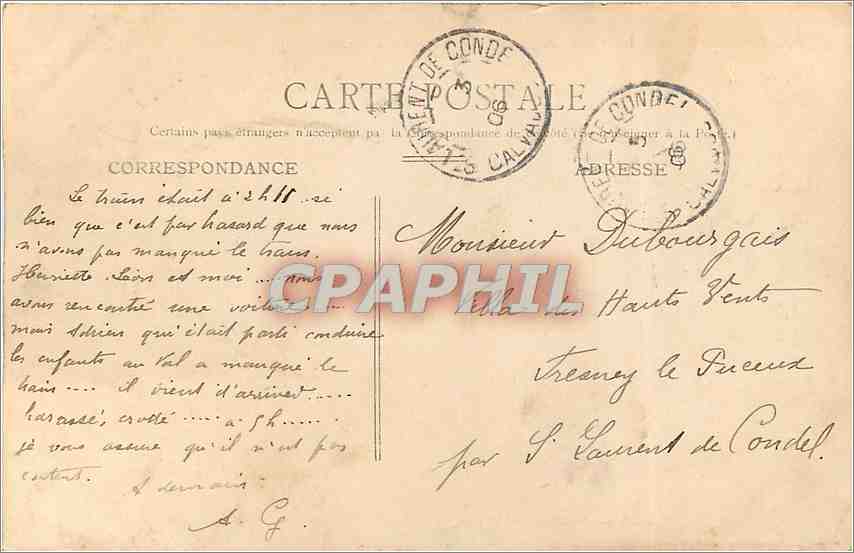 CARTE POSTALE
Certains pays étrangers n'acceptent pas la Correspondance de ce côté (Se renseigner à la Poste.)
CORRESPONDANCE
ADRESSE
ST LAURENT DE CONDEL CALVADOS
3 06
ST LAURENT DE CONDEL CALVADOS
06
Le train était à 2h 11 si
bien que c'est par hasard que nous
n'avons pas manqué le train.
Henriette Léon et moi .... nous
avons rencontré une voiture ....
mais Adrien qu'était parti conduire
les enfants au Val a manqué le
train .... il vient d'arriver .....
harassé, crotté ..... à 5h .....
je vous assure qu'il n'est pas
content.
A demain
A. G.
Monsieur Dubourgais
villa des Hauts Vents
Fresney le Puceux
par St Laurent de Condel.
CPAPHIL